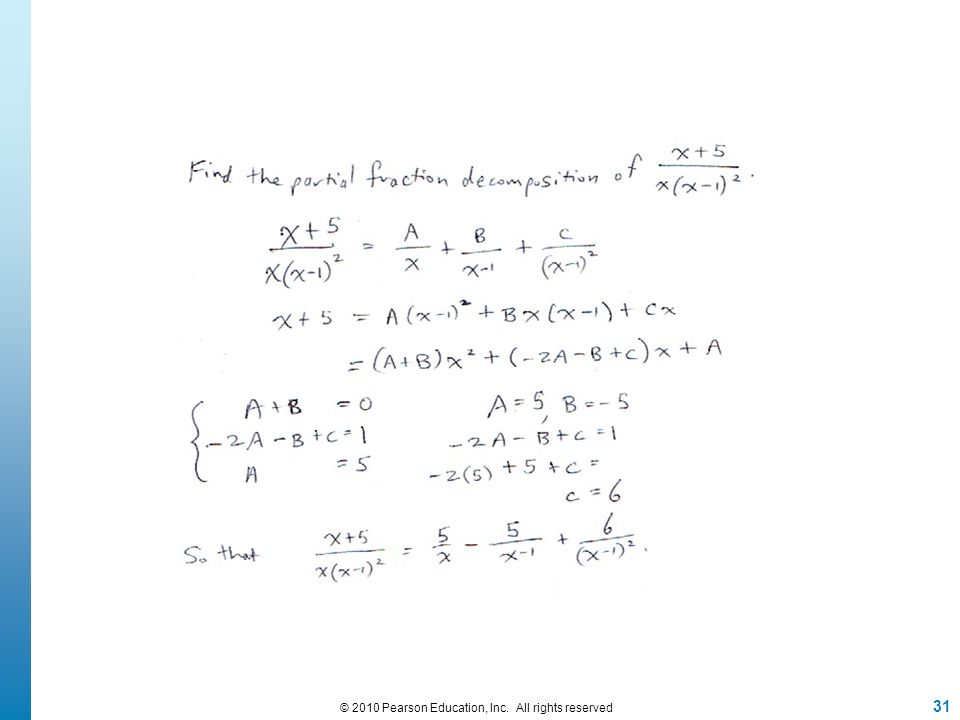 Find the partial fraction decomposition of (x+5)/(x(x-1)²).
(x+5)/(x(x-1)²) = A/x + B/(x-1) + C/(x-1)²
x+5 = A(x-1)² + Bx(x-1) + Cx
= (A+B)x² + (-2A-B+C)x + A
{ A+B = 0   A=5, B=-5
-2A-B+C=1   -2A-B+C=1
A = 5   -2(5)+5+C=
C=6
So that (x+5)/(x(x-1)²) = 5/x - 5/(x-1) + 6/(x-1)².
© 2010 Pearson Education, Inc. All rights reserved
31